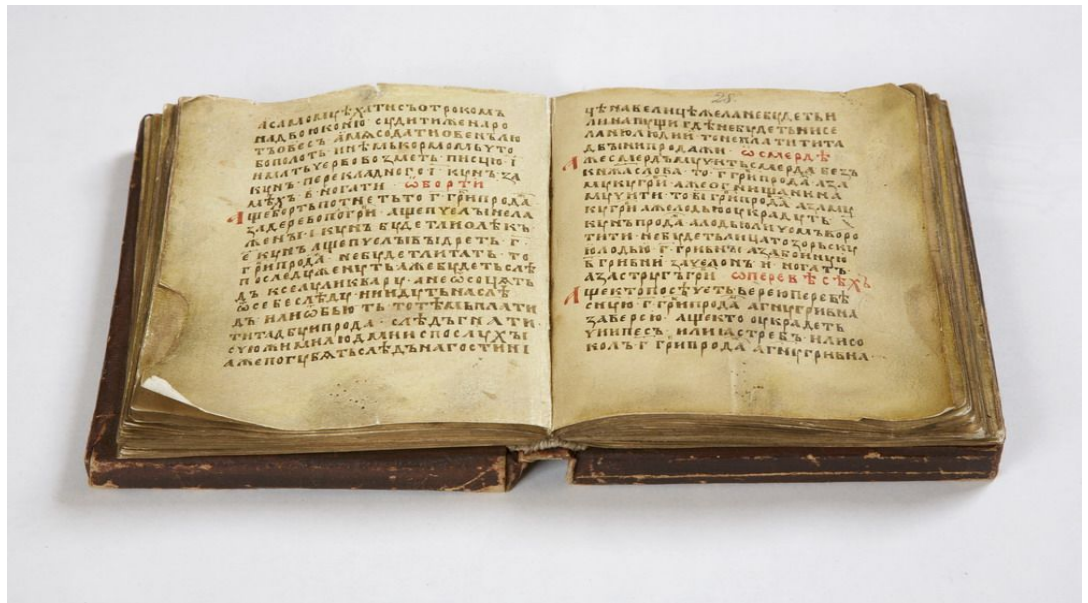 асамомуѣхатисъотрокомъ
надвоюконю · сидитиженаро
тъовесъ амѧсодатиовенълю
бополоть · инѣмькормомьуто
иматьуервобоꙁметь · писцю · і
кунъ · перекладного і · кунъ · ꙁа
мѣхъ · в · ногати · ѡборти
ащебортьпотнетьто · г · грнпрода
ꙁадеревополгри · ащепуелынела
женꙑ · і · кунъ будетлиолѣкъ
е · кунъ ащепуелꙑвꙑдреть · г ·
грнпрода · небудетлитать · то
последуженуть ажебудетьслѣ
дъ кселуликвару · анеѿсоцѧть
ѿсебеследу · нииидутьнаслѣ
дъ илиѿбьють · тотѣмьплати
титадбуипрода · слѣдъгнати ·
сцюжимилюдмииспослухꙑ
ажепогубѧтьслѣдънагостині
цѣнавелицѣжеланебудетьи
линапущигдѣнебудетьнисе
ланюлюдии · тонеплатитита
двꙑнипродажи · ѡсмердѣ
ажесмердъмуунтьсмерда беꙁъ
кнѧжаслова · то · г · грнпрода · аꙁа
мукугрн · ажеогнищанина
муунти · то · ві · грнпрода · аꙁаму
кугрн ажелодьюукрадуть · ꙁ
кунъпрода · алодьюлиуомъворо
тити · небудетьлицатоꙁорьскую
юлодью · г · гривнꙑ · аꙁабоиную
в · гривни · ꙁауелонъ · и · ногатъ
аꙁаструігъгрн · ѡперевѣсѣхъ
ащектопосѣуеть · вереюперевѣ
сную · г · грнпрода · агнугривна
ꙁаверею · ащекто оукрадеть
унипесъ · илиꙗстребъ · илисо
колъ · г · грнпрода · агнугривна ·